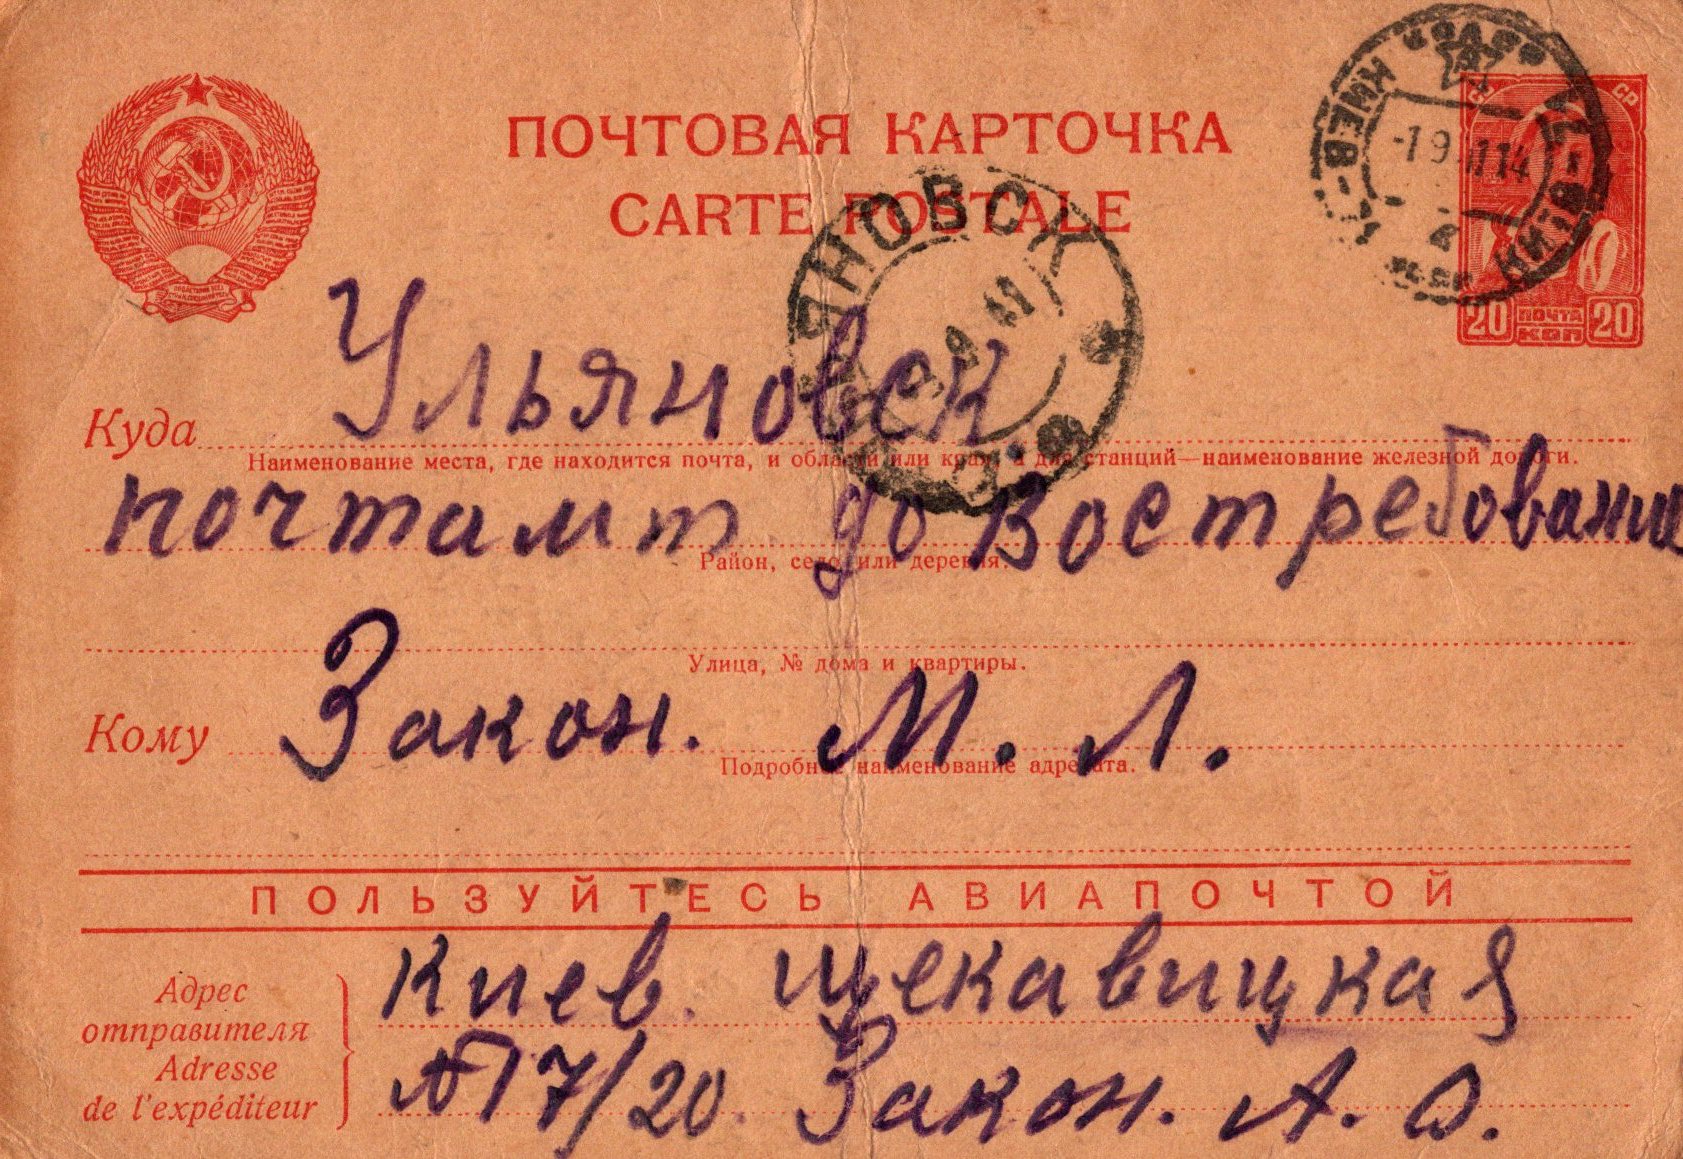 ПОЧТОВАЯ КАРТОЧКА
CARTE POSTALE
КИЕВ КИЇВ
-1 9 41 14
ЯНОВСК
9 41
20 ПОЧТА КОП 20
Куда Ульяновск.
Наименование места, где находится почта, и области или края, а для станций—наименование железной дороги.
почтамт до Востребовани
Район, село или деревня.
Улица, № дома и квартиры.
Кому Закон. М. Л.
Подробное наименование адресата.
ПОЛЬЗУЙТЕСЬ АВИАПОЧТОЙ
Адрес отправителя
Adresse de l'expéditeur
Киев. Щекавицкая
№ 17/20. Закон. А. О.